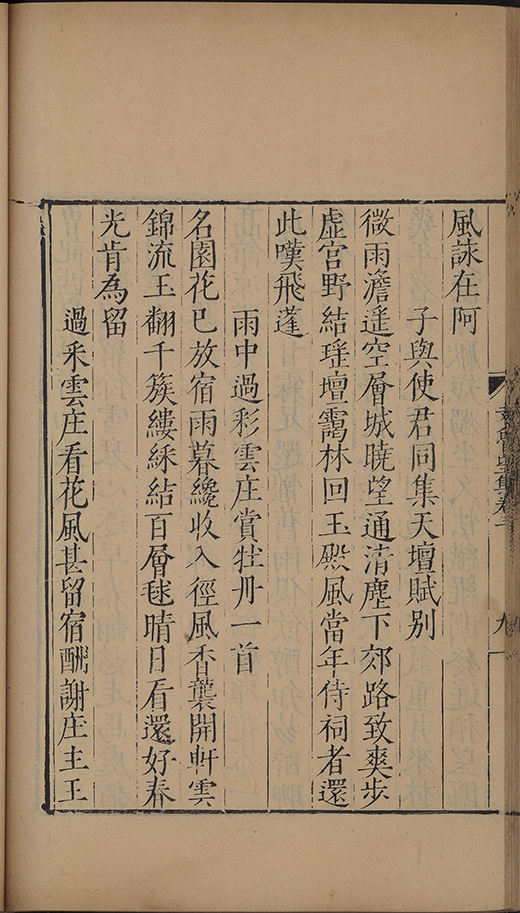 風詠在阿
子與使君同集天壇賦別
微雨澹遥空層城曉望通清塵下郊路致爽步
虛宫野結瑶壇靄林回玉殿風當年侍祠者還
此嘆飛蓬
雨中過彩雲庄賞牡丹一首
名園花已放宿雨暮纔收入徑風香襲開軒雲
錦流玉翻千簇縷綵結百層毬晴日看還好春
光肯為留
過采雲庄看花風甚留宿酬謝庄主王